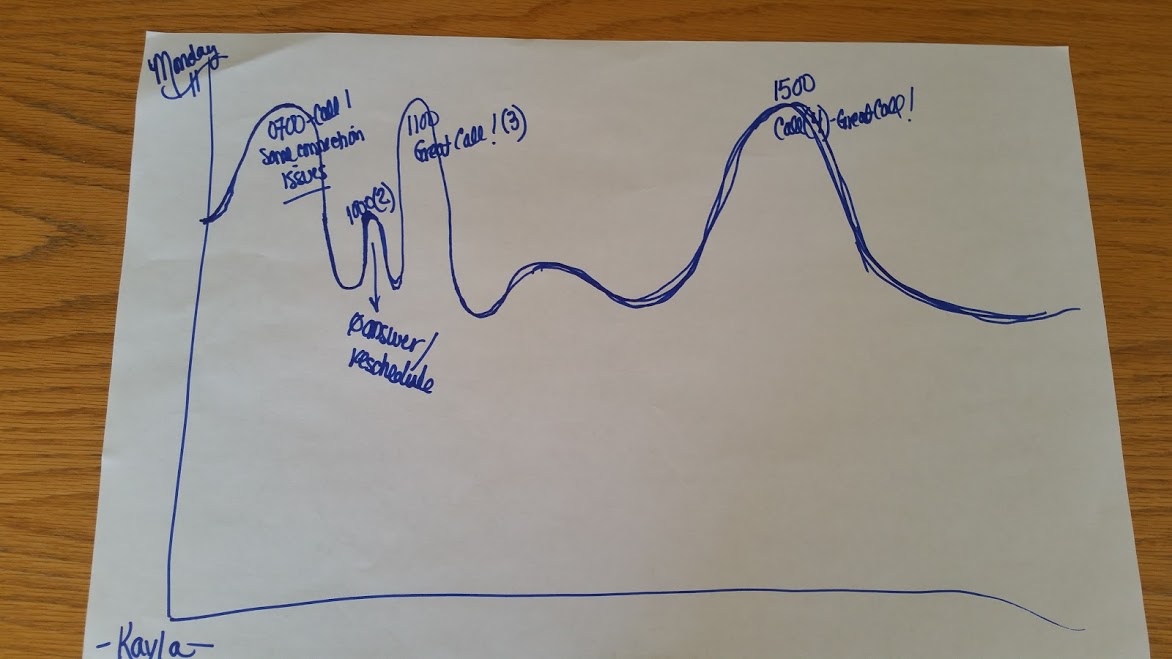 Monday
0700-Call 1
Some connection
issues
1000(2)
Ø answer/
reschedule
1100
Great Call! (3)
1500
Call(4)-Great Call!
-Kayla-